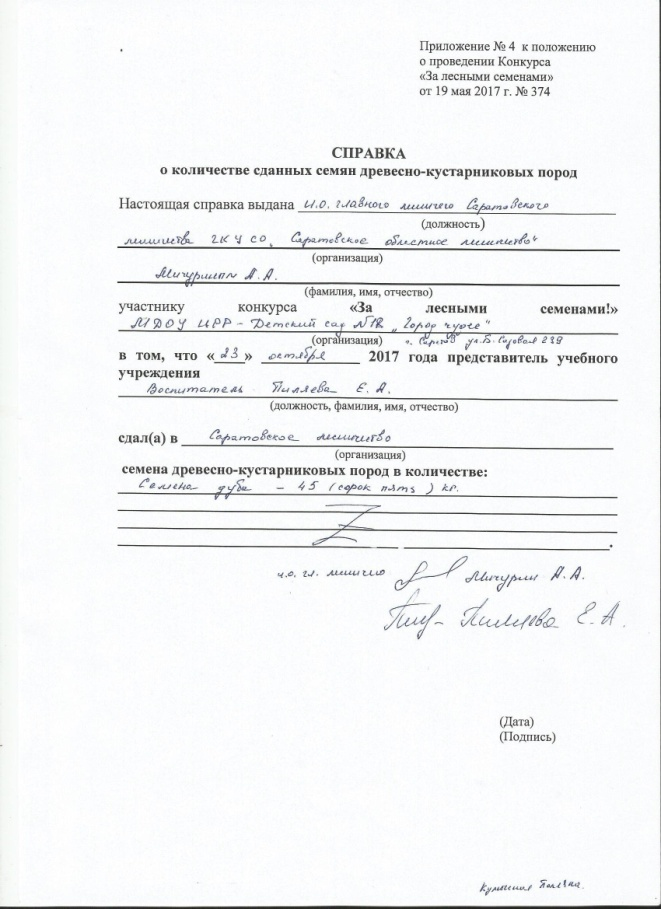 Приложение № 4 к положению
о проведении Конкурса
«За лесными семенами»
от 19 мая 2017 г. № 374
СПРАВКА
о количестве сданных семян древесно-кустарниковых пород
Настоящая справка выдана и.о. главного лесничего Саратовского
(должность)
лесничества ГКУ СО „Саратовское областное лесничество"
(организация)
А.А.
(фамилия, имя, отчество)
участнику конкурса «За лесными семенами!»
МДОУ ЦРР - Детский сад „Город чудес"
(организация) г. Саратов ул. Б. Садовая 239
в том, что «23» октября 2017 года представитель учебного
учреждения
Воспитатель Пиляева Е. А.
(должность, фамилия, имя, отчество)
сдал(а) в Саратовское лесничество
(организация)
семена древесно-кустарниковых пород в количестве:
Семена дуба - 45 (сорок пять) кг.
и.о. гл. лесничего А.А.
Пиляева Е. А.
(Дата)
(Подпись)